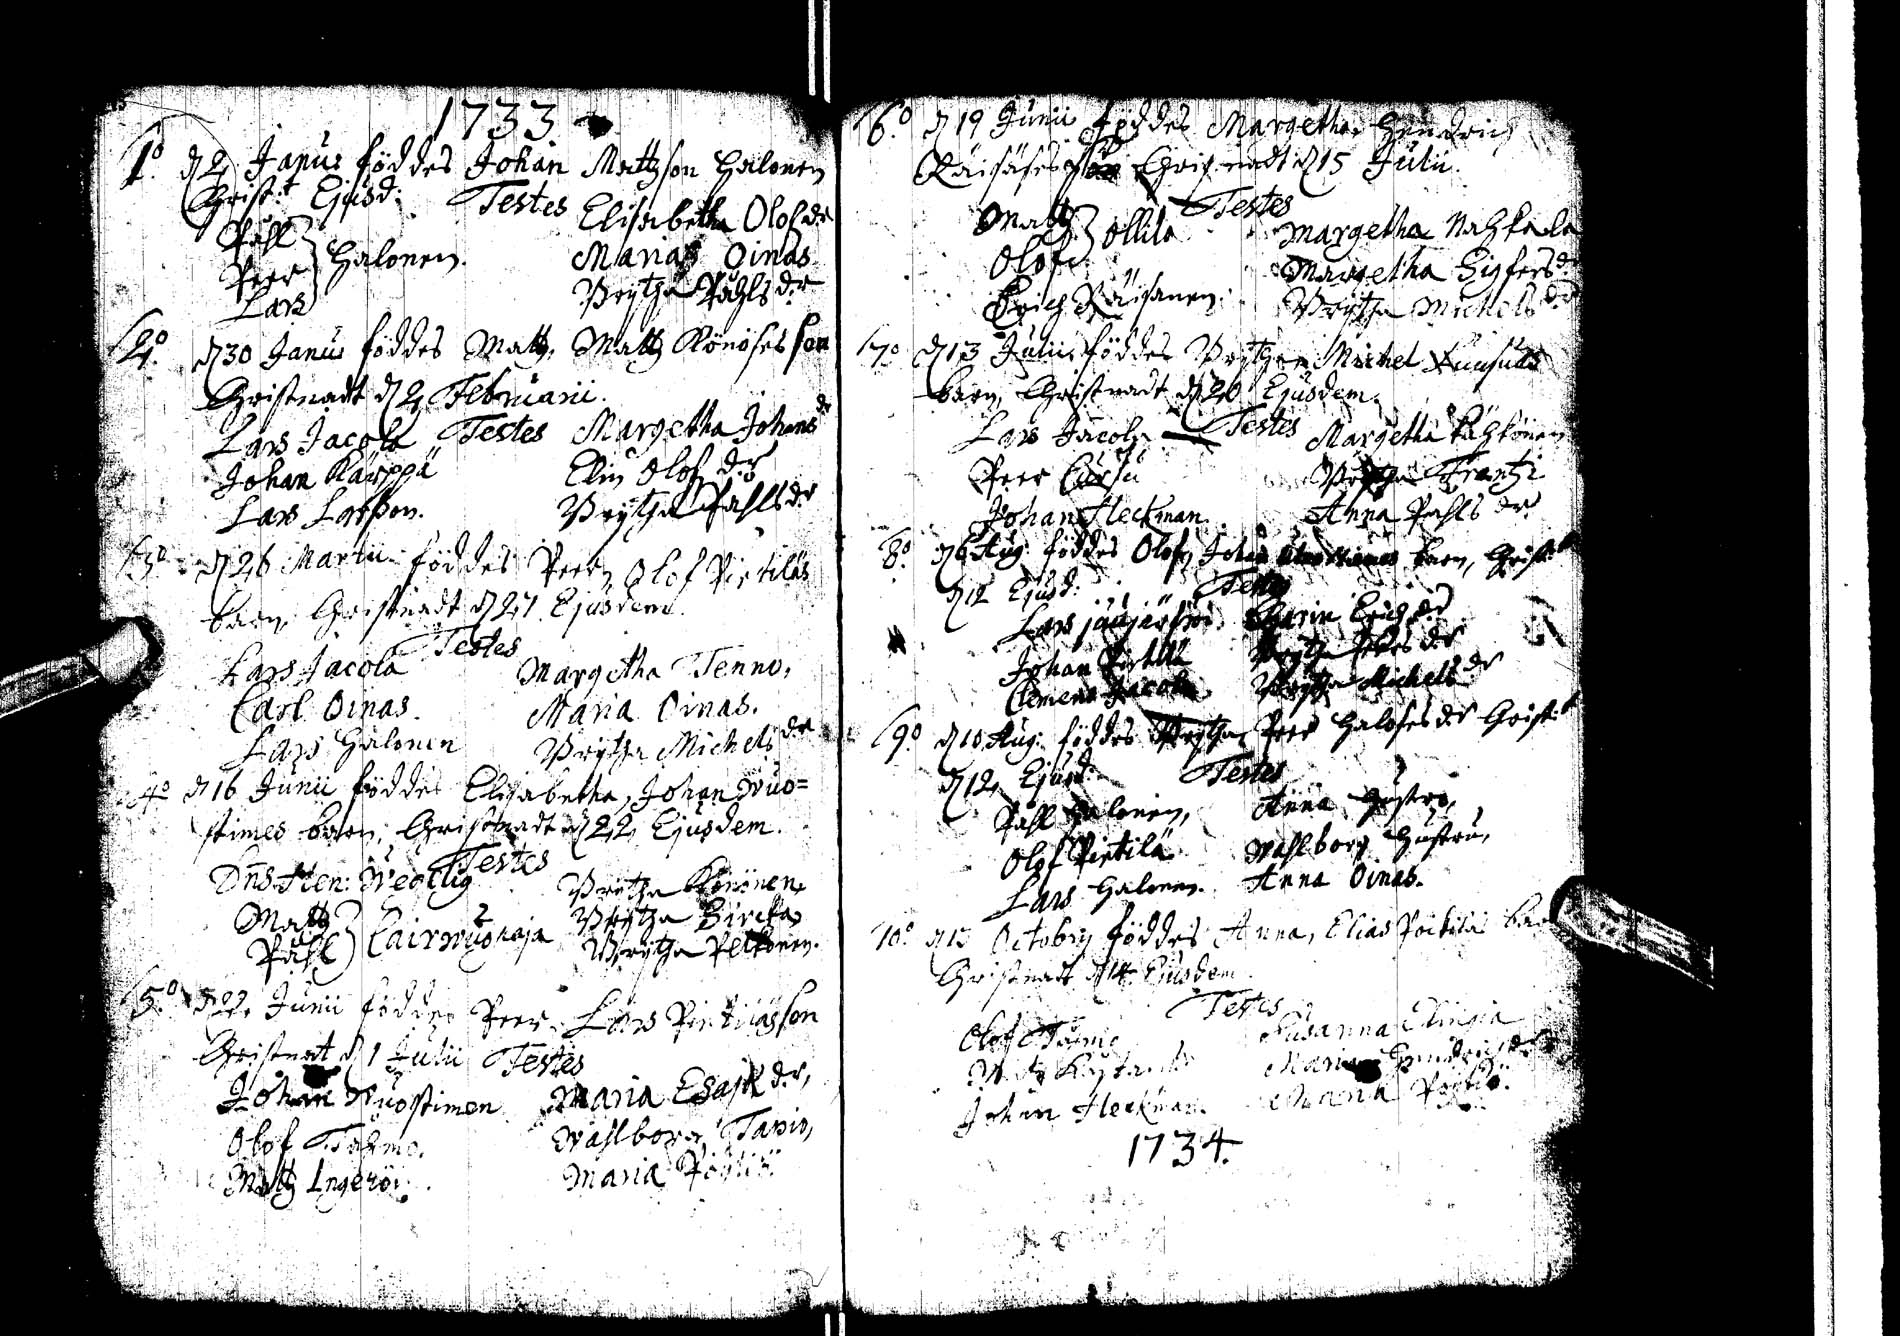 1733
1.° d 2 Janu: föddes Johan Mattzson Halonen
Christ.t Ejusd: Testes Elisabetha Olofdr
Påhl Maria Oinas
Peer Halonen. Brÿtha Påhlsdr
Lars
2.° d 30 Janu: föddes Matz, Matz Könösessson
Christnadt d 2 Februarii.
Lars Jacola Testes Margetha Johansdr
Johan Kärppä Elin Olofsdr
Lars Larsson. Brÿtha Påhlsdr
3.° d 26 Martii föddes Peer, Olof Pietiläs
barn, Christnadt d 27 Ejusdem.
Testes
Lars Jacola Margetha Tenno,
Carl Oinas. Maria Oinas.
Lars Halonen Brÿtha Michelsdr
4.° d 16 Junii föddes Elisabetha, Johan Wuo=
stimes barn, Christnadt d 22 Ejusdem.
Testes
Dns Hen: Brÿtha Könönen,
Matz Cairwuohaja Brÿtha Sirckas
Påhl Brÿtha Pelkonen.
5.° d 22 Junii föddes Peer, Lars Pietilässon
Christnat d 1 Julii Testes
Johan Wuostimen Maria Esajædr,
Olof Tahmo. Wahlborg Tanio,
Matz Ingeröi. Maria
6.° d 19 Junii föddes Margetha, Hendrich
Räisäses Christnadt d 15 Julii.
Testes
Matz Ollila Margetha Nahkala
Olof Margetha Sigfersdr
Erich Räisänen. Brÿtha Michelsdr
7.° d 13 Julii föddes Brÿtha, Michel
barn, Christnadt d 20 Ejusdem.
Lars Jacola Testes Margetha Kähkönen
Peer Cursu Brÿtha Frantzi
Johan Heckman. Anna Påhlsdr.
8.° d 6 Aug: föddes Olof, Johan barn, Christ:t
d 12 Ejusd: Testes
Lars jaujärfwi Carin Erichsdr
Johan Pietilä Brÿtha dr
Clemens Jacola Brÿtha Michelsdr
9.° d 10 Aug: föddes Brÿtha, Peer Halosesdr Christ:t
d 12 Ejusd: Testes
Påhl Halonen, Anna Hustro,
Olof Pietilä Wahlborg Hustru,
Lars Halonen. Anna Oinas.
10.° d 13 Octobris föddes Anna, Elias barn
Christnadt d 14 Ejusdem.
Testes
Olof Tahmo Susanna
Maria Hendrichsdr
Johan Heckman. Maria
1734.